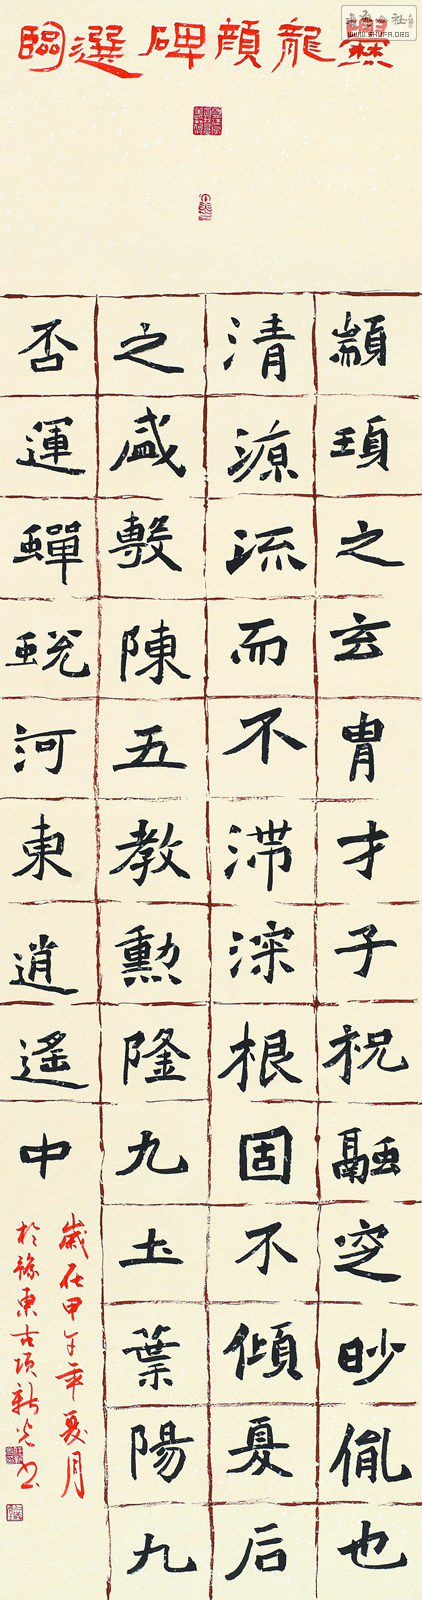 爨龍顏碑選臨
顓頊之玄冑才子祝融之眇胤也
清源流而不滯深根固不傾夏后
之盛敷陳五教勳隆九土葉陽九
否運蟬蛻河東逍遙中
歲在甲午年夏月
於豫東古項新光书
WWW.SHUFA.ORG